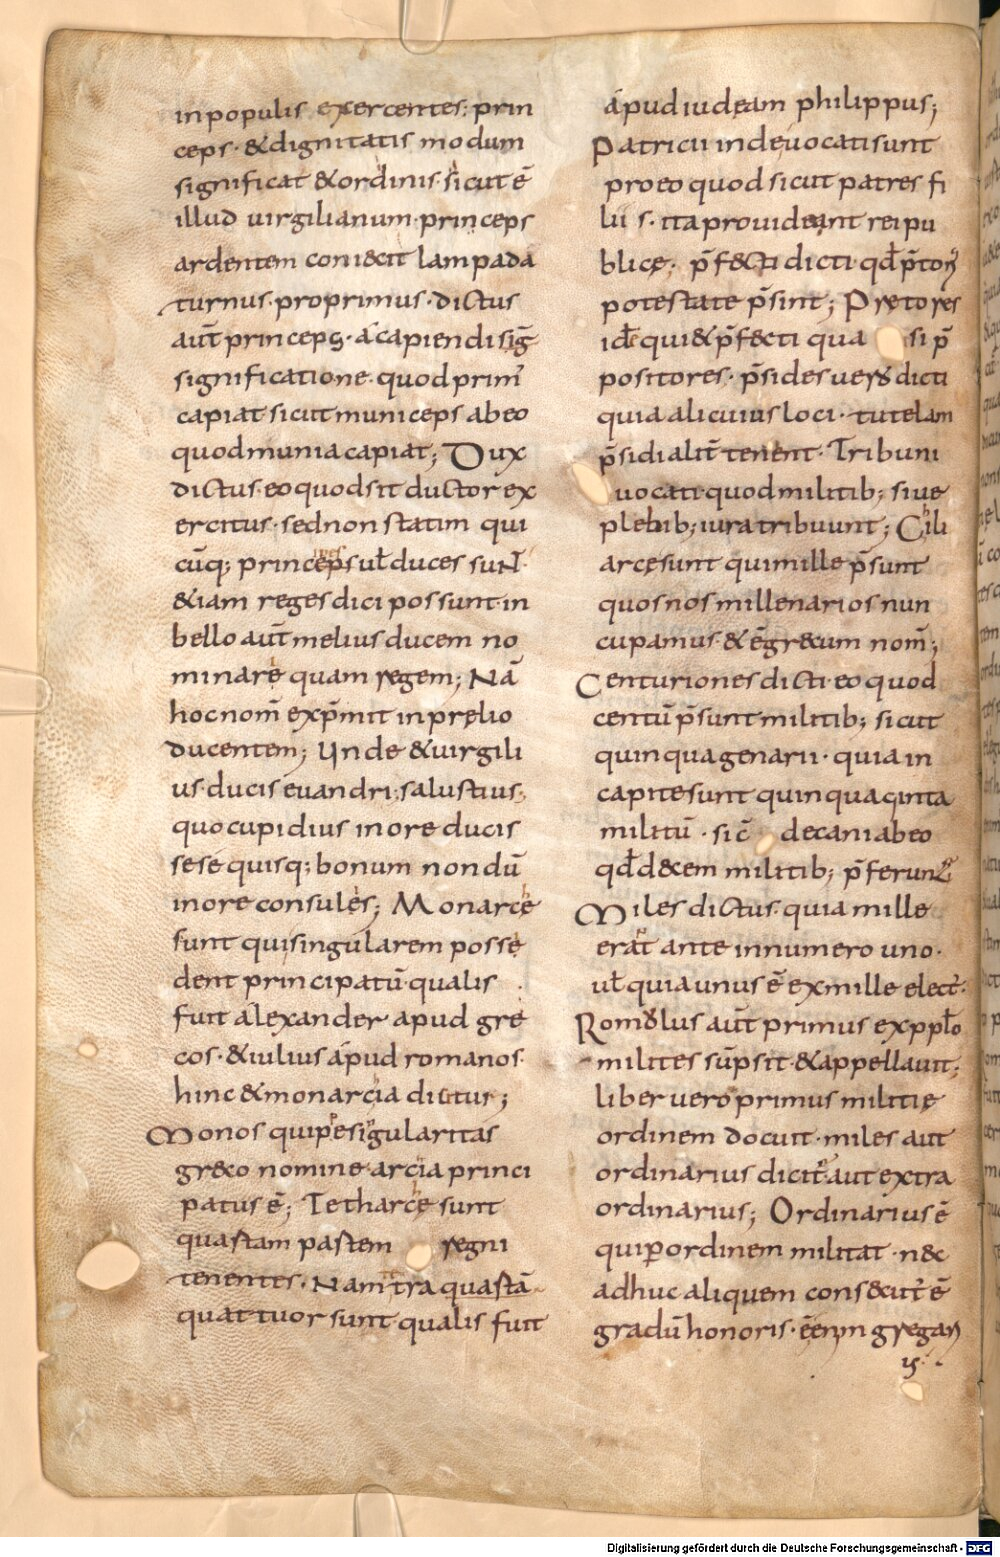 inpopulis exercentes; prin
ceps · &dignitatis modum
significat &ordinis · sicut ē
illud uirgilianum · princeps
ardentem coni&cit lampada
turnus · proprimus · dictus
aūt princeps · acapiendi sig̅
significatione · quod prim̅
capiat sicut municeps abeo
quod munia capiat; Dux
dictus · eo quod sit ductor ex
ercitus · sed non statim qui
cūq; princeps uł duces sunt̅
&iam reges dici possunt · in
bello aūt melius ducem no
minare quam regem; Nā
hoc nom̅ exp̅mit in prelio
ducentem; Unde &uirgili
us · ducis euandri; salustius;
quo cupidius in ore ducis
sese quisq; bonum non dū
in ore consules; Monarce
sunt qui singularem posse
dent principatū · qualis
fuit alexander apud gre
cos · &iulius apud romanos ·
hinc &monarcia dicitur;
Monos quipe sigularitas
greco nomine arcia princi
patus ē; Tetharce sunt
quastam pastem regni
tenentes · Nam tra quastā
quattuor sunt qualis fuit
apud iudęam philippus;
Patricii inde uocati sunt
pro eo quod sicut patres fi
lii s · ita prouideant rei pu
blicę · p̅f&cti dicti · qd̅ p̅tor
potestate p̅sint; Pretores
id̅e qui & p̅f&cti qua si p̅
positores · p̅sides uero dicti
quia alicuius loci · tutelam
p̅sidialit̅ tenent · Tribuni
uocati quod militib; siue
plebib; iura tribuunt; Cili
arce sunt qui mille p̅sunt
quos nos millenarios nun
cupamus · & ē grecum nom̅;
Centuriones dicti · eo quod
centū p̅sunt militib; sicut
quinquagenarii · quia in
capite sunt quinquaginta
militū · sic̅ decani abeo
qd̅ d&cem militib; p̅ferunt̅
Miles dictus · quia mille
erāt ante in numero uno ·
uł quia unus ē ex mille elect̅;
Romolus aūt primus ex pp̅lo
milites sūpsit · &appellauit;
liber uero primus militię
ordinem docuit · miles aut
ordinarius dicit̅ aut extra
ordinarius; Ordinarius ē
qui p̅ ordinem militat · nec
adhuc aliquem cons&cut̅ ē
gradū honoris · ē enim gregari
us · ·
Digitalisierung gefördert durch die Deutsche Forschungsgemeinschaft - DFG